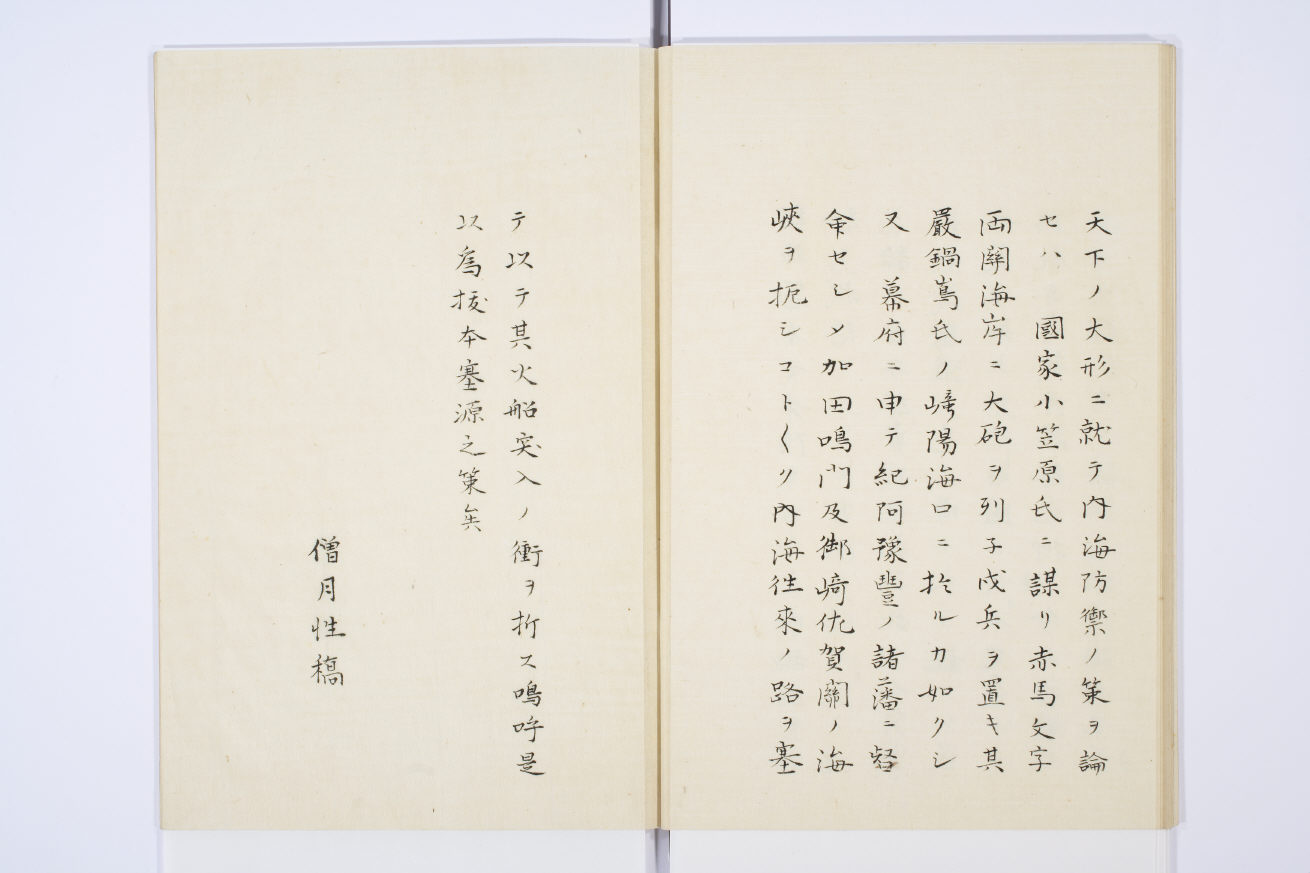 天下ノ大形ニ就テ内海防禦ノ策ヲ論
セハ　國家小笠原氏ニ謀リ赤馬文字
両關海岸ニ大砲ヲ列子戍兵ヲ置キ其
嚴鍋嶌氏ノ﨑陽海口ニ於ルカ如クシ
又　幕府ニ申テ紀阿豫豐ノ諸藩ニ
命セシメ加田鳴門及御﨑佐賀關ノ海
峽ヲ扼シコト〱ク内海往來ノ路ヲ塞
テ以テ其火船突入ノ衝ヲ折ス鳴呼是
以爲拔本塞源之策矣
僧月性稿